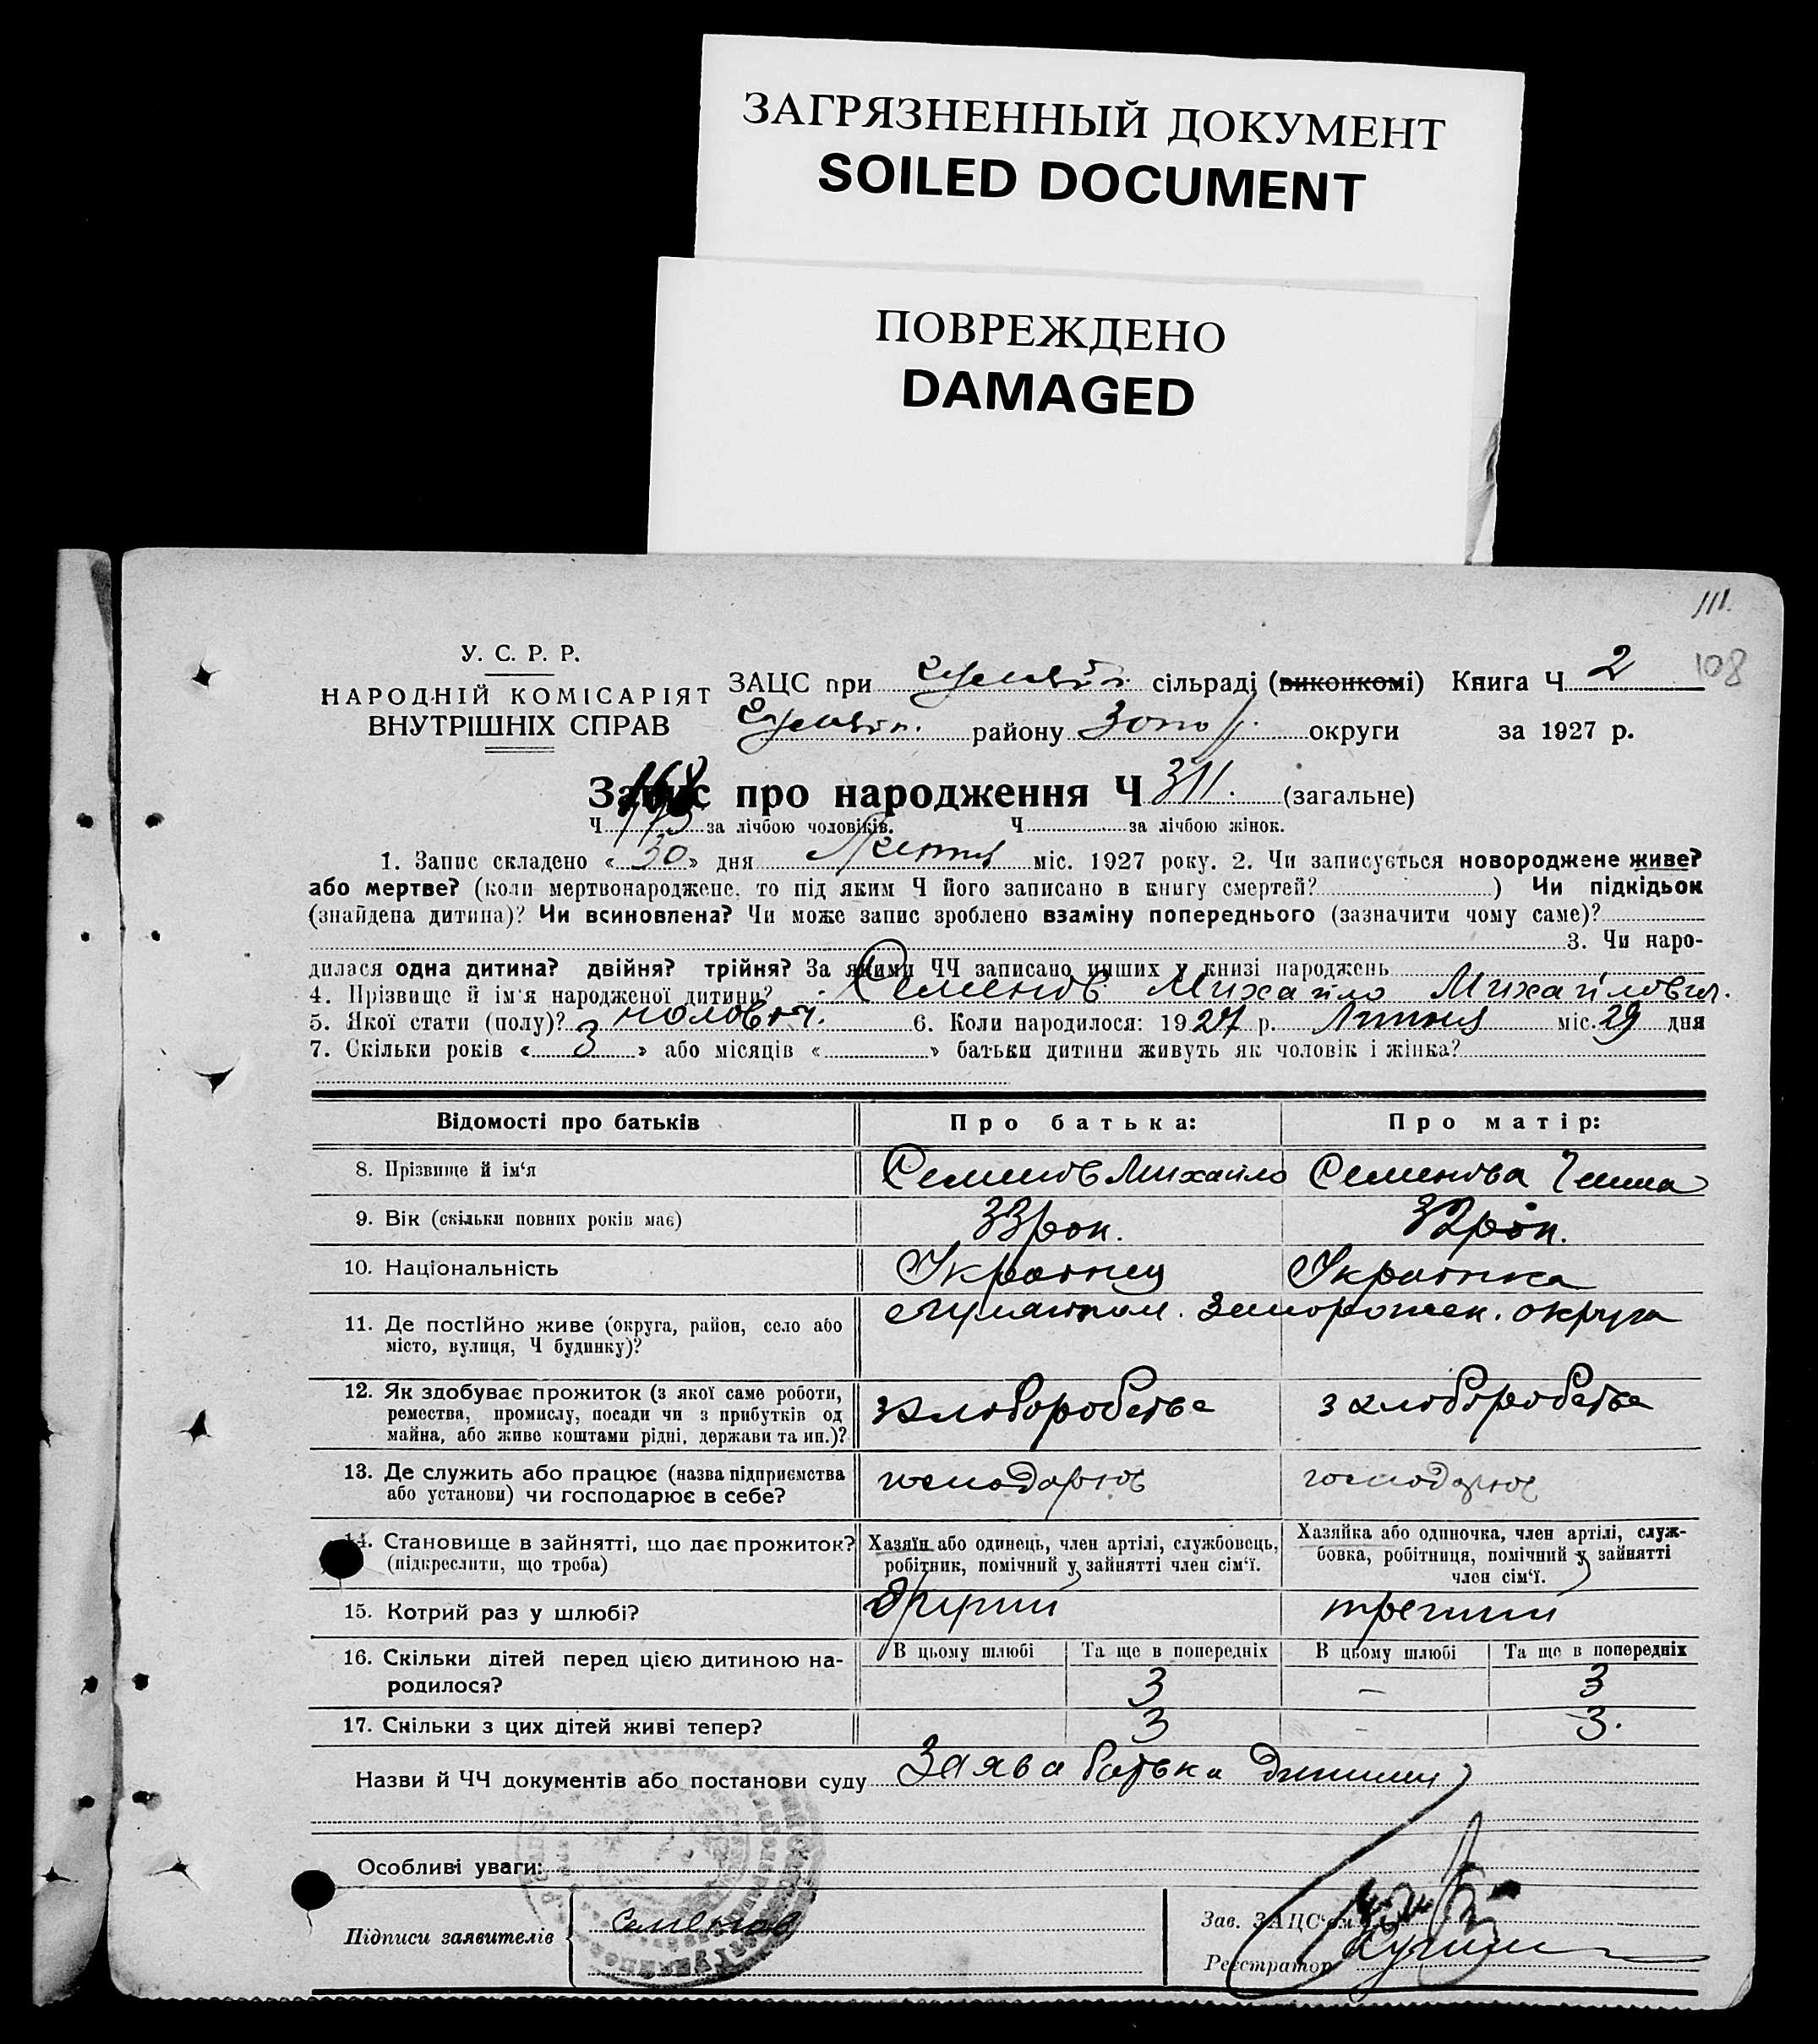 ЗАГРЯЗНЕННЫЙ ДОКУМЕНТ
SOILED DOCUMENT
ПОВРЕЖДЕНО
DAMAGED
111.
108
У. С. Р. Р.
НАРОДНІЙ КОМІСАРІЯТ
ВНУТРІШНІХ СПРАВ
ЗАЦС при сільраді (виконкомі) Книга Ч 2
району округи за 1927 р.
Запис про народження Ч 311. (загальне)
Ч за лічбою чоловіків. Ч за лічбою жінок.
1. Запис складено « 30 » дня міс. 1927 року. 2. Чи записується новороджене живе?
або мертве? (коли мертвонароджене, то під яким Ч його записано в книгу смертей? ) Чи підкідьок
(знайдена дитина)? Чи всиновлена? Чи може запис зроблено взаміну попереднього (зазначити чому саме)?
3. Чи наро-
дилася одна дитина? двійня? трійня? За якими ЧЧ записано инших у книзі народжень
4. Прізвище й ім'я народженої дитини? Семенов Михайло Михайлович.
5. Якої стати (полу)? чоловіч. 6. Коли народилося: 1927 р. Липня міс. 29 дня
7. Скільки років « 3 » або місяців « » батьки дитини живуть як чоловік і жінка?
Відомості про батьків Про батька: Про матір:
8. Прізвище й ім'я Семенов Михайло Семенова
9. Вік (скільки повних років має) 33 рок. 32 рок.
10. Національність Українец Українка
11. Де постійно живе (округа, район, село або
місто, вулиця, Ч будинку)? округа
12. Як здобуває прожиток (з якої саме роботи,
ремества, промислу, посади чи з прибутків од
майна, або живе коштами рідні, держави та ин.)?
з хлоборобства з хлоборобства
13. Де служить або працює (назва підприємства
або установи) чи господарює в себе?
господарює господарює
14. Становище в зайнятті, що дає прожиток?
(підкреслити, що треба)
Хазяїн або одинець, член артілі, службовець,
робітник, помічний у зайнятті член сім'ї.
Хазяйка або одиночка, член артілі, служ-
бовка, робітниця, помічний у зайнятті
член сім'ї.
15. Котрий раз у шлюбі? другий третий
16. Скільки дітей перед цією дитиною на-
родилося?
В цьому шлюбі Та ще в попередніх В цьому шлюбі Та ще в попередніх
3 – 3
17. Скільки з цих дітей живі тепер? 3 – 3.
Назви й ЧЧ документів або постанови суду Заява батька дитини
Особливі уваги:
Підписи заявителів Семенов
Зав. ЗАЦС'ом
Реєстратор